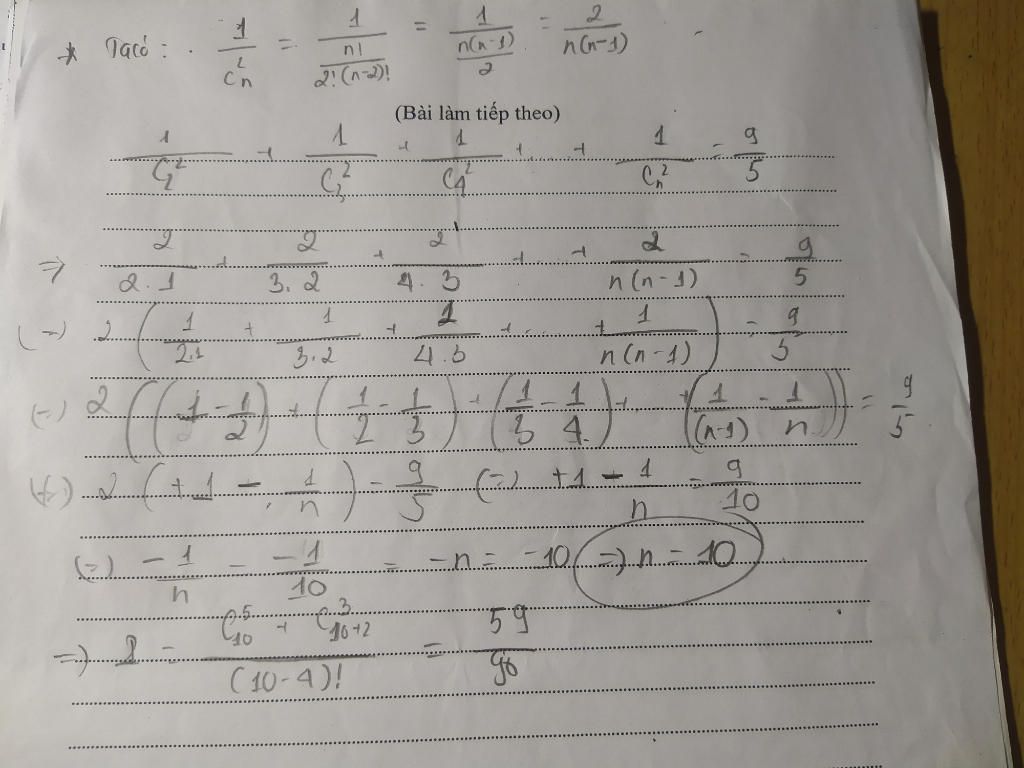 * Ta có : 1/C²n = 1/(n!/(2!(n-2)!)) = 1/(n(n-1)/2) = 2/(n(n-1))
(Bài làm tiếp theo)
1/C₂² + 1/C₃² + 1/C₄² + ... + 1/Cn² = 9/5
=> 2/(2.1) + 2/(3.2) + 2/(4.3) + + 2/(n(n-1)) = 9/5
(=) 2 ( 1/(2.1) + 1/(3.2) + 1/(4.3) + ... + 1/(n(n-1)) ) = 9/5
(=) 2 ( (1 - 1/2) + (1/2 - 1/3) + (1/3 - 1/4) + ... + (1/(n-1) - 1/n) ) = 9/5
(=) 2 ( +1 - 1/n ) = 9/5 (=) +1 - 1/n = 9/10
(=) -1/n = -1/10 = -n = -10 => n = 10
=> = (C₁₀⁵ + C₁₀₊₂³)/((10-4)!) = 59/90